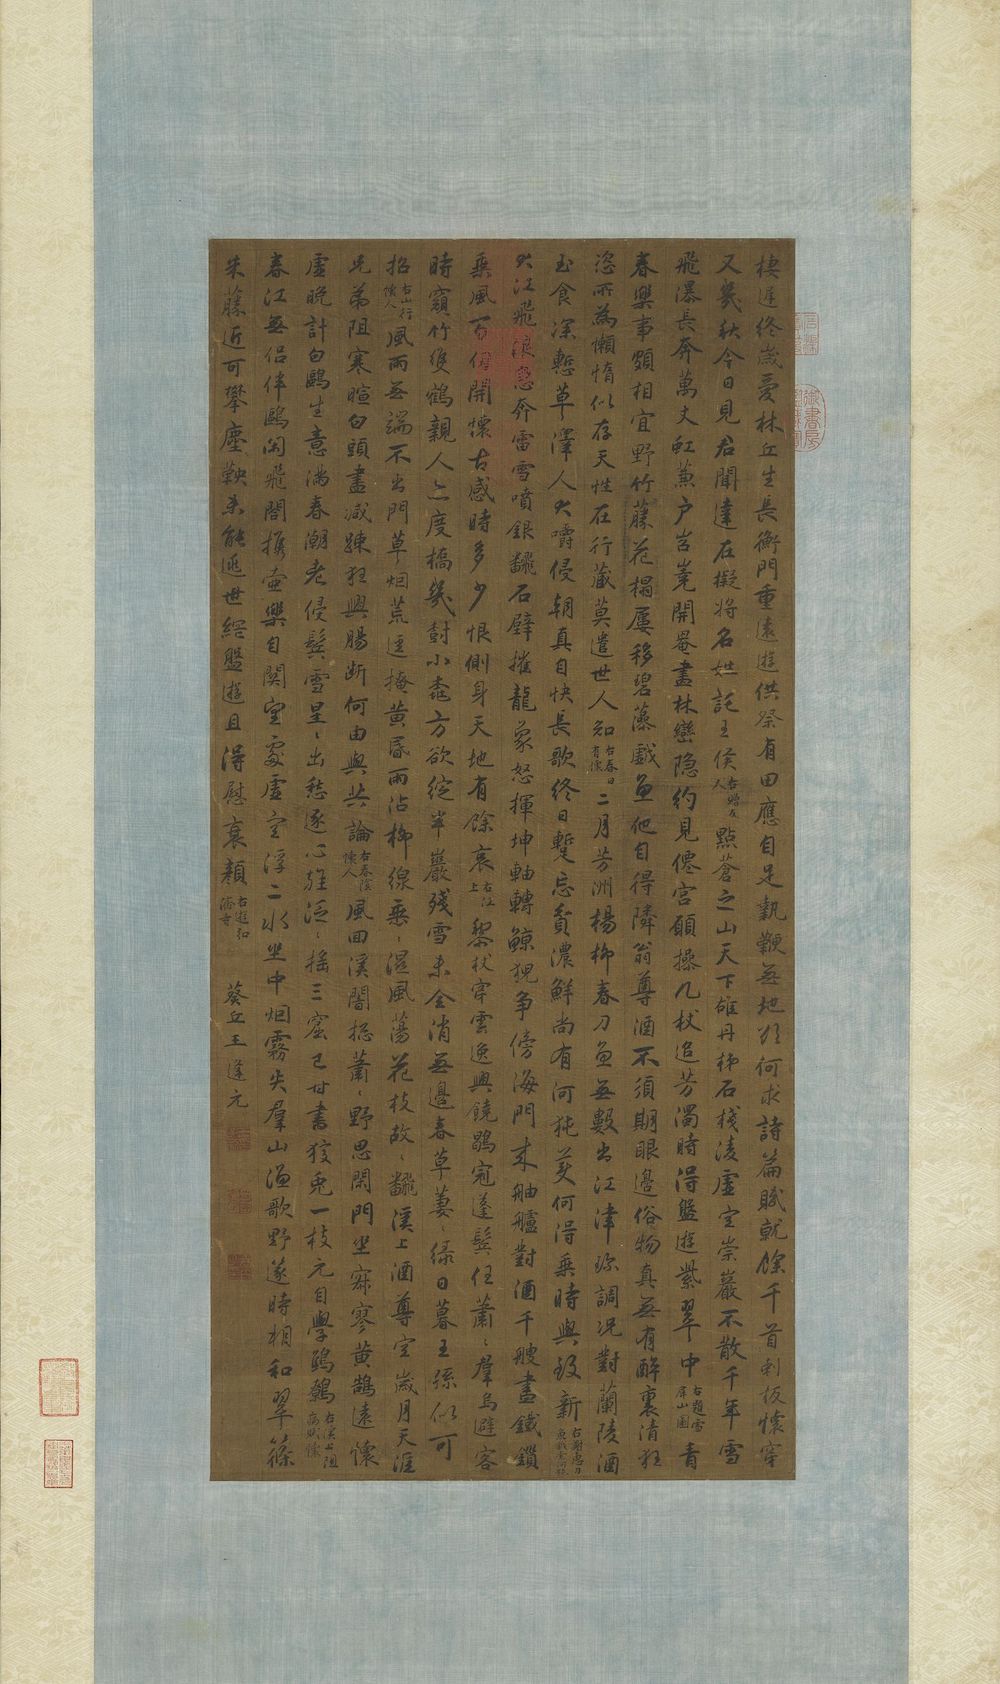 棲遲終歲愛林丘生長衡門重遠遊供祭有田應自足執鞭無地欲何求詩篇賦就餘千首利板懷寧
又幾秋今日見君聞達在擬將名姓託王侯右贈友人點蒼之山天下雄丹梯石棧淩虛空崇巖不散千年雪
飛瀑長奔萬丈虹蕭戶岧嶤開罨畫林巒隱約見僊宮願操几杖追芳濁時得盤遊紫翠中右題雪屏山圖青
春樂事頗相宜野竹藤花榻屢移碧藻戲魚他自得隣翁尊酒不須期眼邊俗物真無有醉裏清狂
恣所為懶惰似存天性在行藏莫遣世人知右春日有懷二月芳洲楊柳春刀魚無數出江津珍調況對蘭陵酒
玉食深慙草澤人大嚼侵朝真自快長歌終日蹔忘貧濃鮮尚有河㹠美何得乘時興致新
大江飛浪急奔雷雪噴銀翻石壁摧龍象怒揮坤軸轉鯨猊爭傍海門來舳艫對酒千艘盡鐵鎖
乘風萬仞開懷古感時多少恨側身天地有餘哀右江上黎杖穿雲逸興饒鶡冠蓬鬢任蕭〻羣烏避客
時窺竹雙鶴親人亦度橋幾樹小桃方欲綻半巖殘雪未全消無邊春草萋〻綠日暮王孫似可
招右山行懷人風雨無端不出門草烟荒逕掩黃昏雨沾柳線垂〻濕風蕩花枝故〻翻溪上酒尊空歲月天涯
兄弟阻寒暄白頭盡減疎狂興腸斷何由與共論右春陰懷人風回溪閣揔蕭〻野思閑門坐寂寥黃鵠遠懷
虛晚計白鷗生意滿春潮老侵鬢雪星〻出愁逐心旌泛〻搖三窟已甘書狡兔一枝元自學鷦鷯右溪上阻風賦懷
春江無侶伴鷗閑飛閣攜壺樂自関望處虛空浮二水坐中烟霧失羣山漁歌野篴時相和翠篠
朱藤近可攀塵鞅未能逃世網盤遊且得慰衰顏右遊弘濟寺 葵丘王逢元